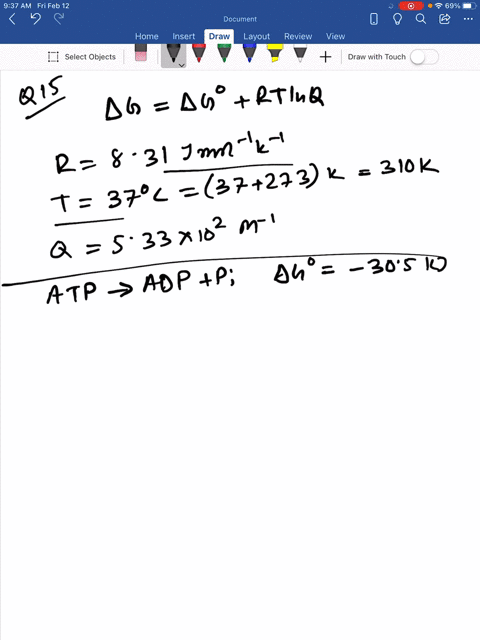 9:37 AM Fri Feb 12
69%
Document
Home Insert Draw Layout Review View
Select Objects
Draw with Touch
Q15
ΔG = ΔG⁰ + RTlnQ
R = 8.31 Jmol⁻¹k⁻¹
T = 37⁰C = (37+273) k = 310K
Q = 5.33×10² M⁻¹
ATP → ADP + Pi ΔG⁰ = -30.5 KJ